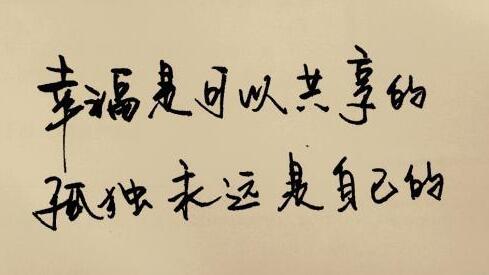 幸福是可以共享的
孤独永远是自己的